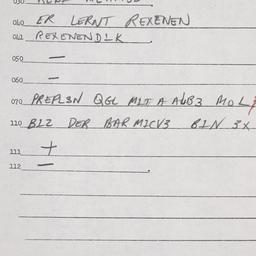 030
040 ER LERNT REXENEN
041 REXENENDLK
050 —
060 —
070 PREPLSN QGL MIT A AUB3 MOL
110 BIZ DER BAR MICV3 BIN 3X
111 +
112 —